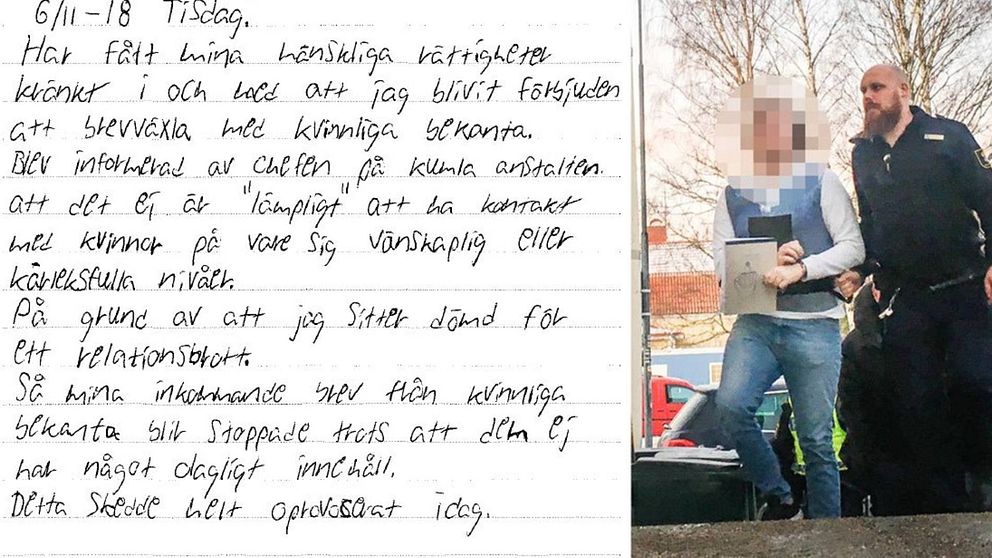 6/11-18 Tisdag.
Har fått mina mänskliga rättigheter
kränkt i och med att jag blivit förbjuden
att brevväxla med kvinnliga bekanta.
Blev informerad av chefen på kumla anstalten.
att det ej är "lämpligt" att ha kontakt
med kvinnor på vare sig vänskaplig eller
kärleksfulla nivåer.
På grund av att jag sitter dömd för
ett relationsbrott.
Så mina inkommande brev från kvinnliga
bekanta blir stoppade trots att dem ej
har något olagligt innehåll.
Detta skedde helt oprovocerat idag.